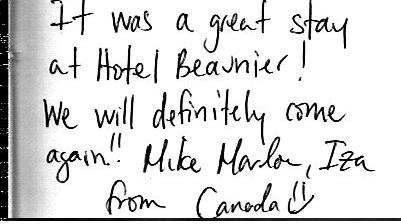 It was a great stay
at Hotel Beaunier!
We will definitely come
again!! Mike Marlou, Iza
from Canada